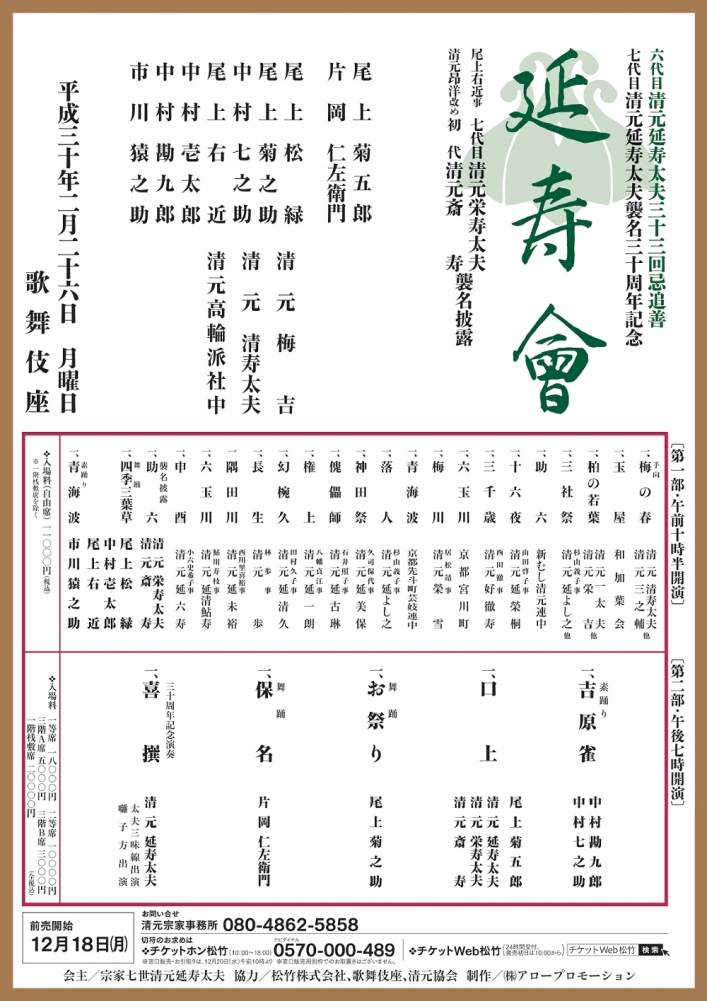 六代目清元延寿太夫三十三回忌追善
七代目清元延寿太夫襲名三十周年記念
延寿會
尾上右近事 七代目清元栄寿太夫
清元昂洋改め 初代清元斎寿 襲名披露
尾上菊五郎
片岡仁左衛門
尾上松緑
尾上菊之助
中村七之助
尾上右近
中村壱太郎
中村勘九郎
市川猿之助
清元梅吉
清元清寿太夫
清元高輪派社中
平成三十年二月二十六日 月曜日
歌舞伎座
［第一部・午前十時半開演］
一、手向 梅の春 清元清寿太夫 清元三之輔 他
一、玉屋 和加葉会
一、柏の若葉 清元一太夫 清元栄吉 他
一、三社祭 杉山義子事 清元延よし之 他
一、助六 新むし清元連中
一、十六夜 山田啓子事 清元延榮桐
一、三千歳 西田徹事 清元好徹寿
一、六玉川 京都宮川町
一、梅川 居松靖事 清元榮雪
一、青海波 京都先斗町芸妓連中
一、落人 杉山義子事 清元延よし之
一、神田祭 久司保代事 清元延美保
一、傀儡師 石井照子事 清元延古琳
一、権上 八幡貞江事 清元延一朗
一、幻椀久 田村久子事 清元延清久
一、長生 林歩事 清元歩
一、隅田川 西川里喜裕事 清元延未裕
一、六玉川 鮎川寿枝事 清元延清鮎寿
一、申酉 小六史希子事 清元延六寿
一、襲名披露 助六 清元栄寿太夫 清元斎寿
一、舞踊 四季三葉草 尾上松緑 中村壱太郎 尾上右近
一、素踊り 青海波 市川猿之助
❖入場料(自由席) 一一〇〇〇円(税込)
※一階桟敷席を除く
［第二部・午後七時開演］
一、素踊り 吉原雀 中村勘九郎 中村七之助
一、口上 尾上菊五郎 清元延寿太夫 清元栄寿太夫 清元斎寿
一、舞踊 お祭り 尾上菊之助
一、舞踊 保名 片岡仁左衛門
一、三十周年記念演奏 喜撰 清元延寿太夫
太夫三味線出演
囃子方出演
❖入場料 一等席 一八〇〇〇円 二等席 一〇〇〇〇円
三階A席 五〇〇〇円 三階B席 三〇〇〇円
一階桟敷席 二〇〇〇〇円 (全税込)
前売開始
12月18日(月)
お問い合せ
清元宗家事務所 080-4862-5858
切符のお求めは
❖チケットホン松竹(10:00〜18:00) ナビダイヤル 0570-000-489
※窓口販売・お引取りは、12月20日(水)午前10時より ※窓口販売用別枠でのお取置きはございません。
❖チケットWeb松竹(24時間受付、発売初日は10:00から) チケットWeb松竹 検索
会主／宗家七世清元延寿太夫 協力／松竹株式会社、歌舞伎座、清元協会 制作／㈱アロープロモーション